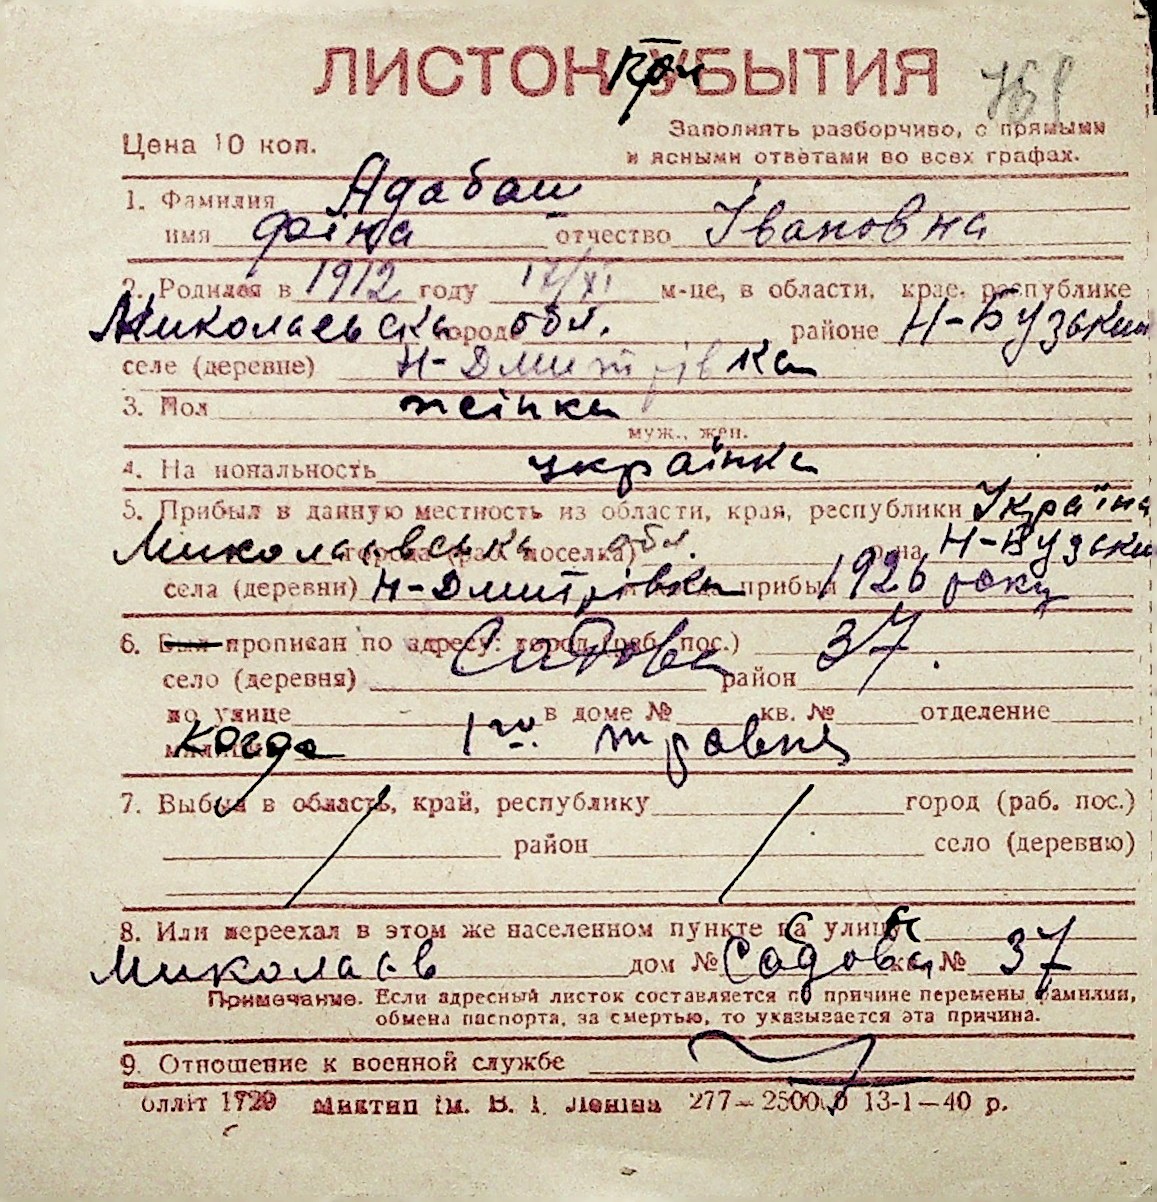 ЛИСТОК УБЫТИЯ
Цена 10 коп.
Заполнять разборчиво, с прямыми
и ясными ответами во всех графах.
1. Фамилия Адабаш
имя отчество Івановна
2. Родился в 1912 году 17/XI м-це, в области, крае, республике
Миколаевська города обл. районе Н-Бузький
селе (деревне) Н-Дмитрівка
3. Пол жінка
муж., жен.
4. Национальность українка
5. Прибыл в данную местность из области, края, республики Україна
Миколаівська города (раб. поселка) обл. р-на Н-Бузьки
села (деревни) Н-Дмитрівка прибыл 1926 року
6. Был прописан по адресу: город (раб. пос.) Садова 37.
село (деревня) район
по улице в доме № кв. № отделение
когда 1го травня
7. Выбыл в область, край, республику город (раб. пос.)
район село (деревню)
8. Или переехал в этом же населенном пункте на улицу
Миколаев дом № Садова кв. № 37
Примечание. Если адресный листок составляется по причине перемены фамилии,
обмена паспорта, за смертью, то указывается эта причина.
9. Отношение к военной службе
Обллiт 1720 Миктип ім. В. І. Леніна 277—250000 13-1—40 р.